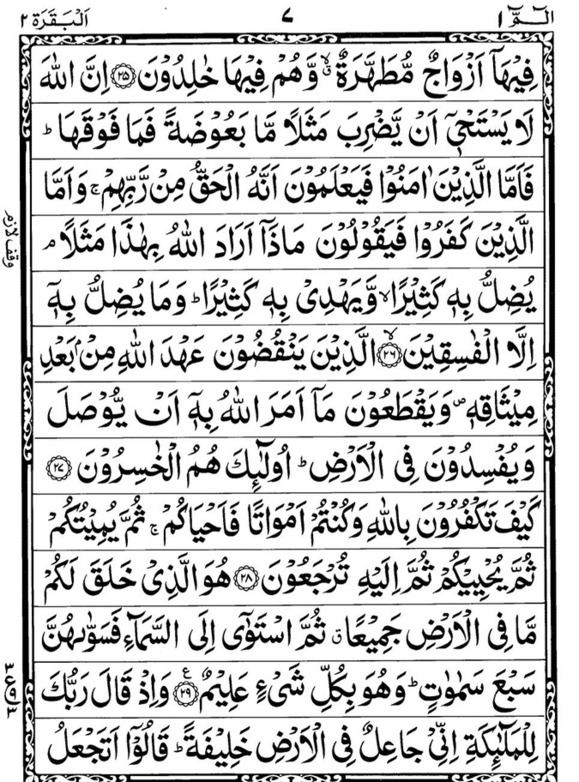 الٓمّٓ ١ ٧ اَلْبَقَرَة ٢
فِيْهَاۤ اَزْوَاجٌ مُّطَهَّرَةٌ ۙۗ وَّهُمْ فِيْهَا خٰلِدُوْنَ ﴿۲۵﴾ اِنَّ اللّٰهَ
لَا يَسْتَحْيٖۤ اَنْ يَّضْرِبَ مَثَلًا مَّا بَعُوْضَةً فَمَا فَوْقَهَا ؕ
فَاَمَّا الَّذِيْنَ اٰمَنُوْا فَيَعْلَمُوْنَ اَنَّهُ الْحَقُّ مِنْ رَّبِّهِمْ ۚ وَاَمَّا
الَّذِيْنَ كَفَرُوْا فَيَقُوْلُوْنَ مَاذَاۤ اَرَادَ اللّٰهُ بِهٰذَا مَثَلًا ۘ
وقف لازم
يُضِلُّ بِهٖ كَثِيْرًا ۙ وَّيَهْدِىْ بِهٖ كَثِيْرًا ؕ وَمَا يُضِلُّ بِهٖۤ
اِلَّا الْفٰسِقِيْنَ ۙ﴿۲۶﴾ الَّذِيْنَ يَنْقُضُوْنَ عَهْدَ اللّٰهِ مِنْۢ بَعْدِ
مِيْثَاقِهٖ ۪ وَيَقْطَعُوْنَ مَاۤ اَمَرَ اللّٰهُ بِهٖۤ اَنْ يُّوْصَلَ
وَيُفْسِدُوْنَ فِى الْاَرْضِ ؕ اُولٰٓئِكَ هُمُ الْخٰسِرُوْنَ ﴿۲۷﴾
كَيْفَ تَكْفُرُوْنَ بِاللّٰهِ وَكُنْتُمْ اَمْوَاتًا فَاَحْيَاكُمْ ۚ ثُمَّ يُمِيْتُكُمْ
ثُمَّ يُحْيِيْكُمْ ثُمَّ اِلَيْهِ تُرْجَعُوْنَ ﴿۲۸﴾ هُوَ الَّذِىْ خَلَقَ لَكُمْ
مَّا فِى الْاَرْضِ جَمِيْعًا ۗ ثُمَّ اسْتَوٰۤى اِلَى السَّمَآءِ فَسَوّٰىهُنَّ
سَبْعَ سَمٰوٰتٍ ؕ وَهُوَ بِكُلِّ شَىْءٍ عَلِيْمٌ ﴿۲۹﴾ع وَاِذْ قَالَ رَبُّكَ
لِلْمَلٰٓئِكَةِ اِنِّىْ جَاعِلٌ فِى الْاَرْضِ خَلِيْفَةً ؕ قَالُوْۤا اَتَجْعَلُ